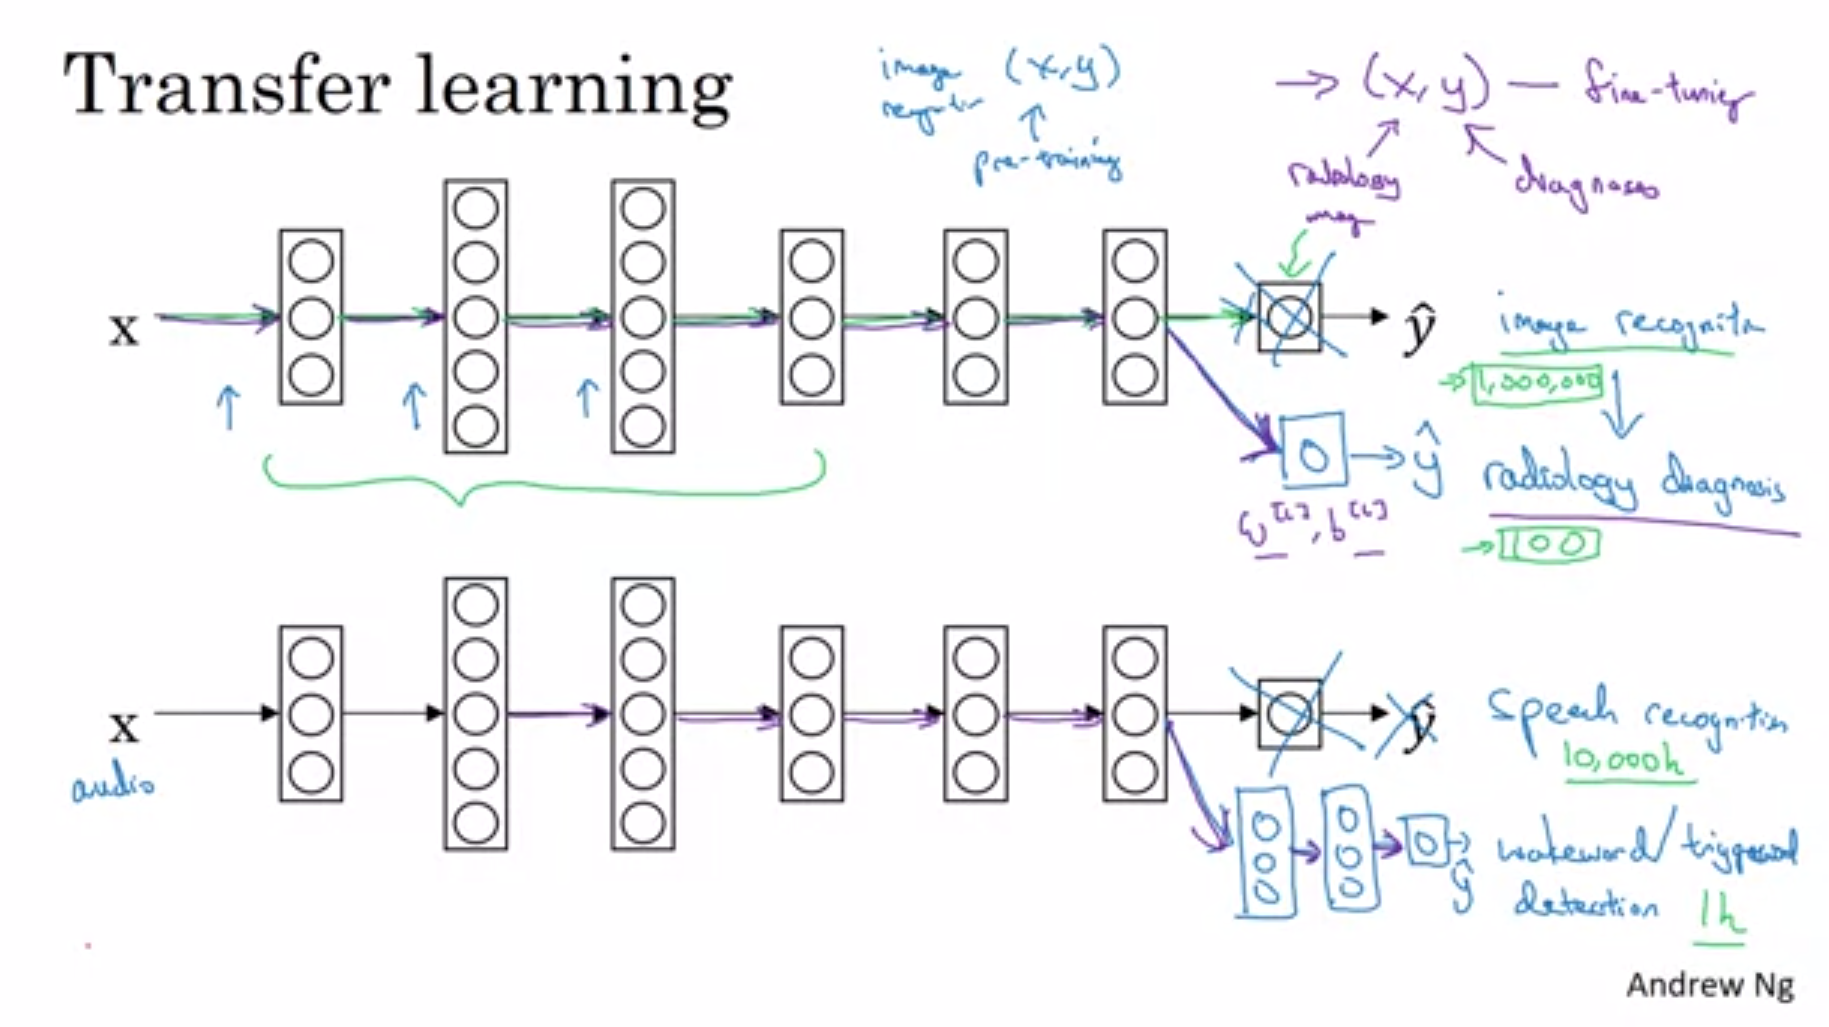 Transfer learning
image (x,y)
recognition
↑
pre-training
→ (x,y) — fine-tuning
radiology
image
diagnosis
x
ŷ
image recognition
→ 1,000,000
ŷ
radiology diagnosis
w[L], b[L]
→ 100
x
audio
ŷ
Speech recognition
10,000h
ŷ
wakeword/triggerword
detection 1h
Andrew Ng